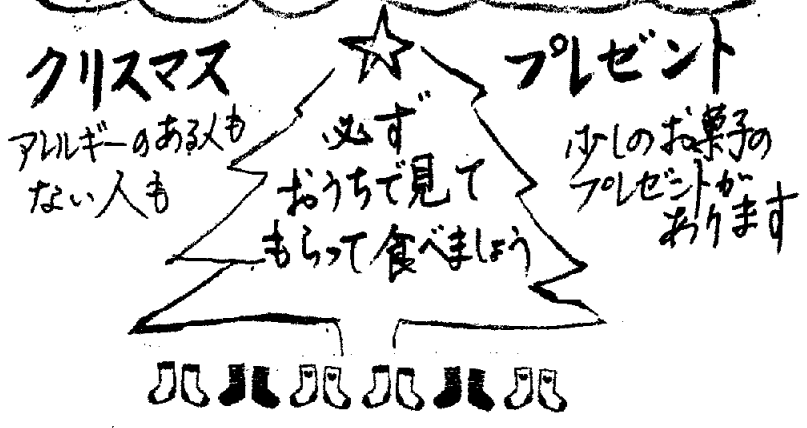 クリスマス
プレゼント
アレルギーのある人も
ない人も
必ず
おうちで見て
もらって食べましょう
少しのお菓子の
プレゼントが
あります